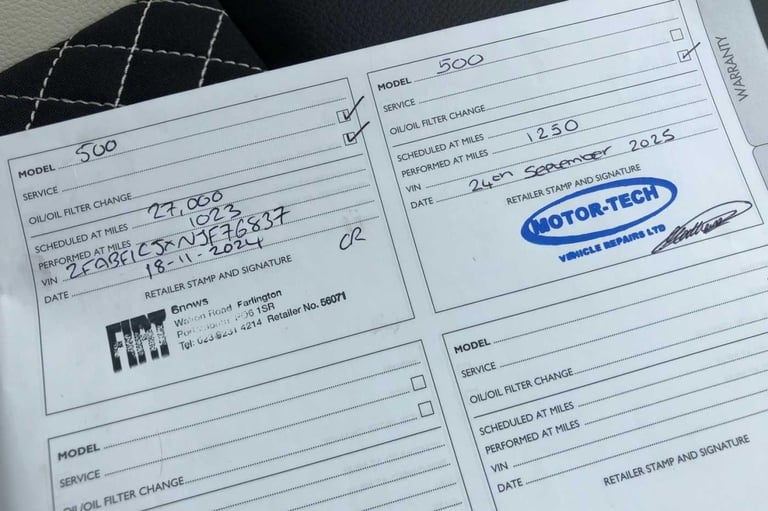 MODEL 500
SERVICE
OIL/OIL FILTER CHANGE
SCHEDULED AT MILES 27,000
PERFORMED AT MILES 1023
VIN ZFABF1CJXNJF76837
DATE 18-11-2024
RETAILER STAMP AND SIGNATURE
CR
FIAT
Snows
Road Farlington
PO6 1SR
Tel: 023 9231 4214 Retailer No. 56071
MODEL 500
SERVICE
OIL/OIL FILTER CHANGE
SCHEDULED AT MILES
PERFORMED AT MILES 1250
VIN
DATE 24th September 2025
RETAILER STAMP AND SIGNATURE
MOTOR-TECH
VEHICLE REPAIRS LTD
WARRANTY
MODEL
SERVICE
OIL/OIL FILTER CHANGE
MODEL
SERVICE
OIL/OIL FILTER CHANGE
SCHEDULED AT MILES
PERFORMED AT MILES
VIN
DATE
RETAILER STAMP AND SIGNATURE